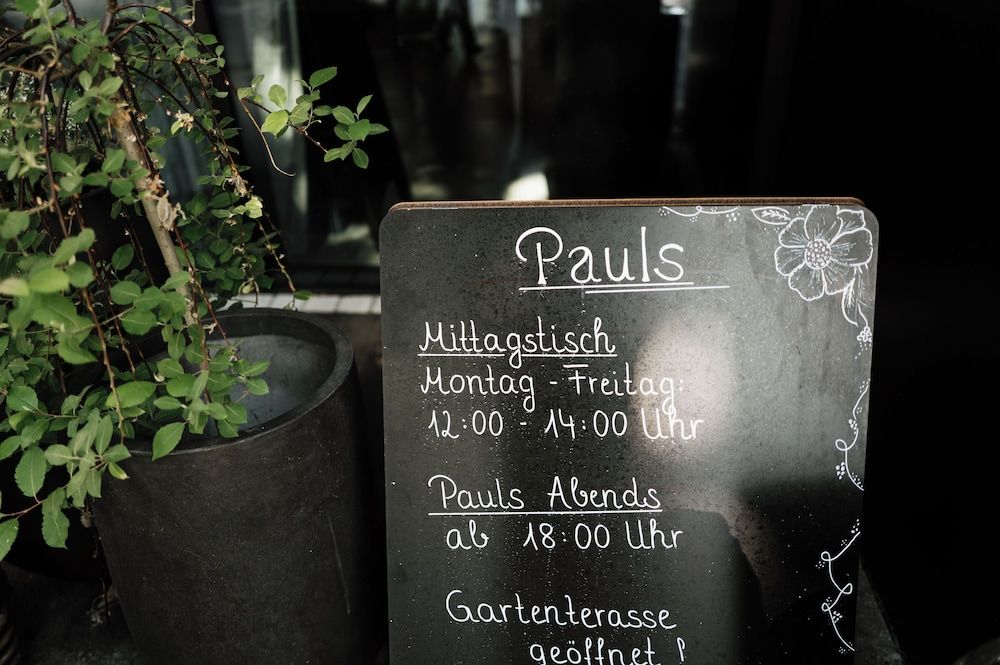 Pauls
Mittagstisch
Montag - Freitag:
12:00 - 14:00 Uhr
Pauls Abends
ab 18:00 Uhr
Gartenterasse
geöffnet !